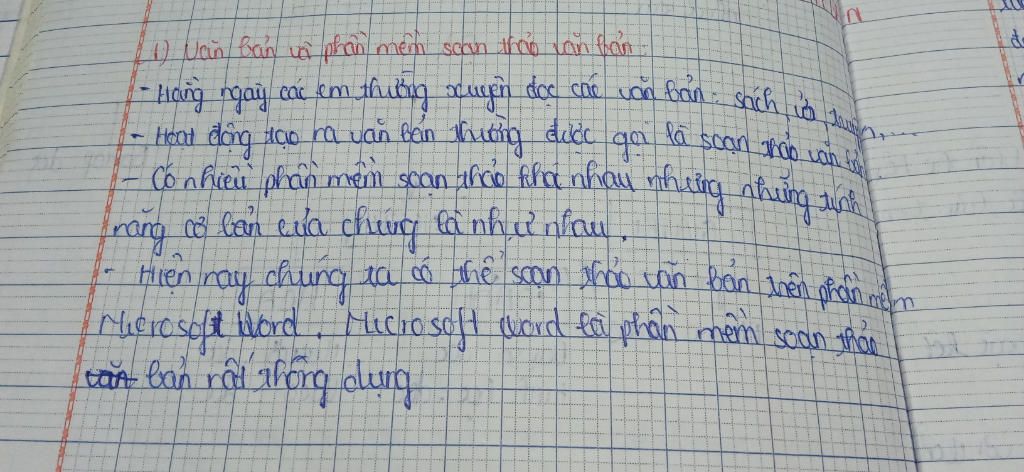 1) Văn bản và phần mềm soạn thảo văn bản:
- Hằng ngày các em thường xuyên đọc các văn bản: sách, vở, truyện,...
- Hoạt động tạo ra văn bản thường được gọi là soạn thảo văn bản
- Có nhiều phần mềm soạn thảo khá nhau nhưng những tính
năng cơ bản của chúng là như nhau.
- Hiện nay chúng ta có thể soạn thảo văn bản trên phần mềm
Microsoft Word. Microsoft Word là phần mềm soạn thảo
văn bản rất thông dụng